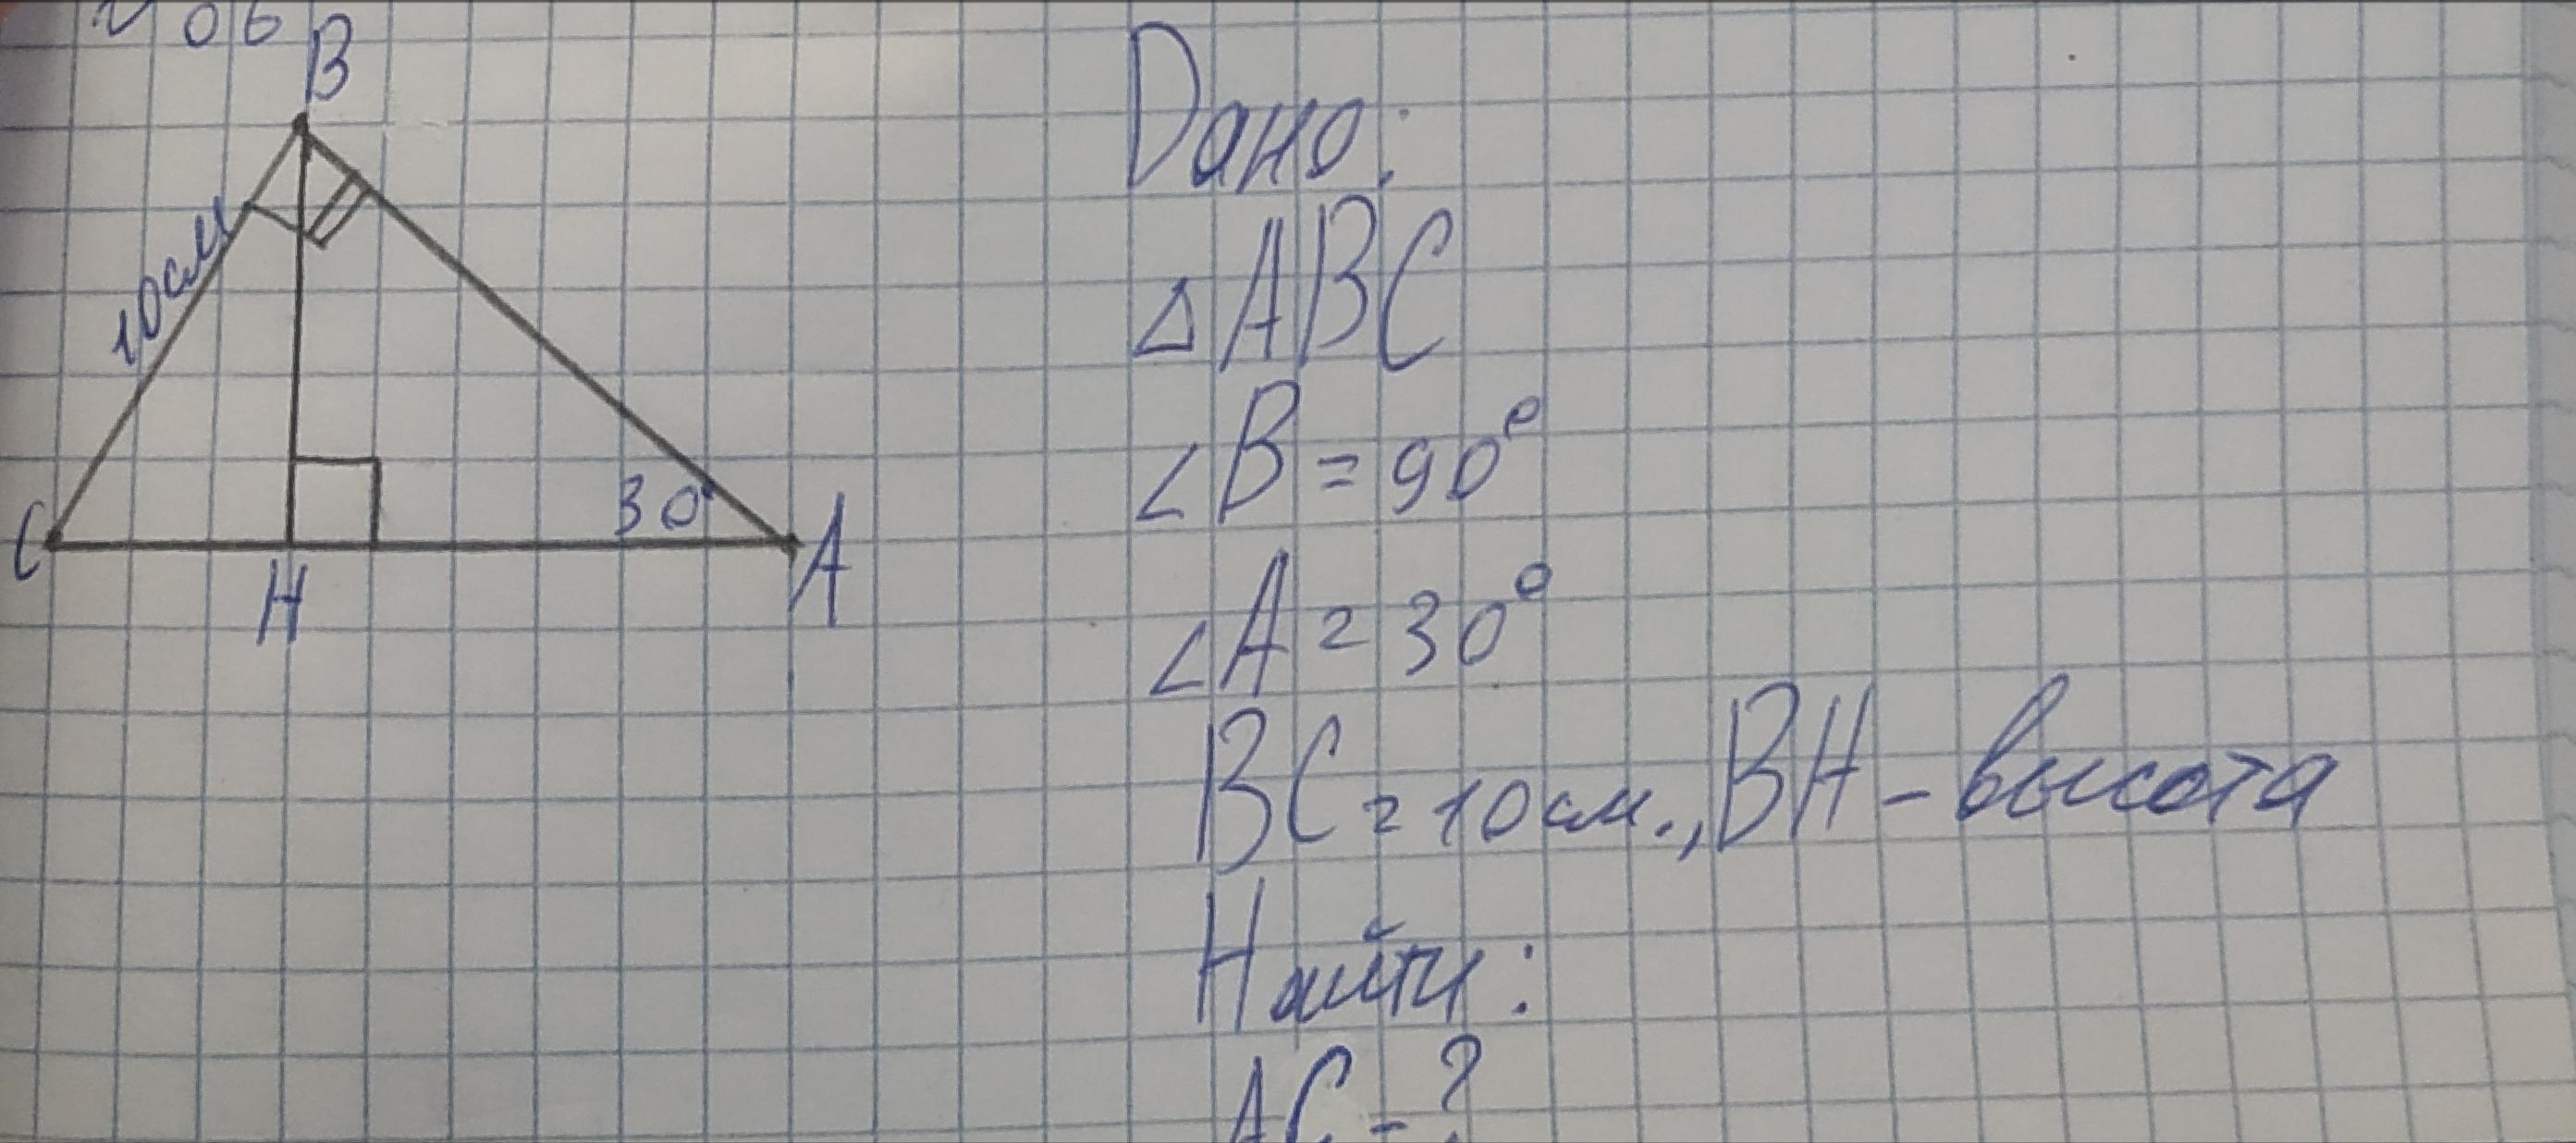 B
10см
30°
C
H
A
Дано:
△ABC
∠B = 90°
∠A = 30°
BC = 10см., BH - высота
Найти:
AC - ?